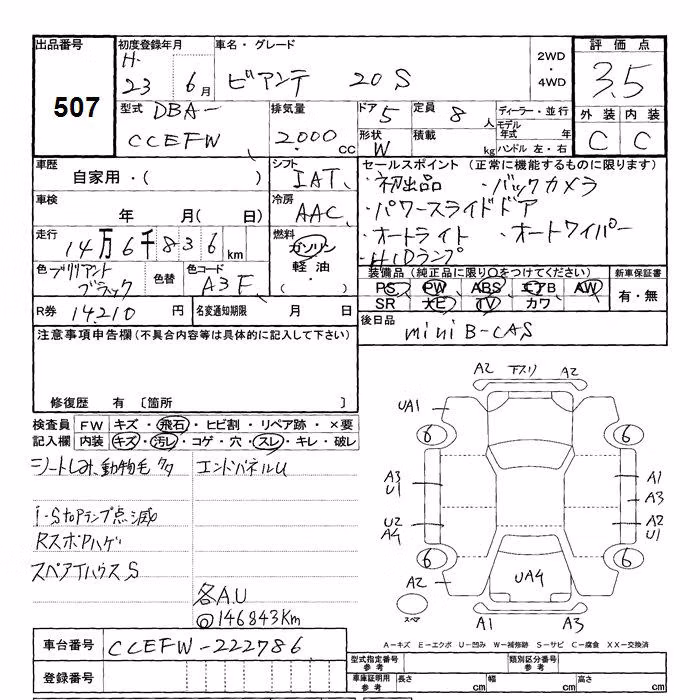 出品番号 初度登録年月 車名・グレード 2WD・4WD 評価点
507 H.23 6月 ビアンテ 20S 3.5
型式 DBA- 排気量 ドア 5 定員 8人 ディーラー・並行 外装 内装
CCEFW 2000cc 形状 W 積載 kg モデル年式 年 ハンドル 左・右 C C
車歴 自家用・( ) シフト IAT セールスポイント (正常に機能するものに限ります)
車検 年 月( 日) 冷房 AAC ・初出品 ・バックカメラ
・パワースライドドア
走行 14万6千836km 燃料 ガソリン 軽油・( ) ・オートライト ・オートワイパー
・HIDランプ
色 ブリリアントブラック 色替 色コード A3F 装備品 (純正品に限り○をつけてください) 新車保証書
PS PW ABS エアB AW 有・無
SR ナビ TV カワ
R券 14210円 名変通知期限 月 日 後日品 miniB-CAS
注意事項申告欄(不具合内容等は具体的に記入して下さい)
修復歴 有 〔箇所 〕
検査員 FW キズ・飛石・ヒビ割・リペア跡・×要
記入欄 内装 キズ・汚レ・コゲ・穴・スレ・キレ・破レ
シートしみ、動物毛 エンドパネルU
i-Stopランプ点滅
RスポAハゲ
スペアタイハウスS
各A.U
146843Km
車台番号 CCEFW-222786
登録番号
A2 下スリ A2
UA1
6 6
A3 U1 A1
A3
U2 A4 A2 U1
6 6
A2 UA4
スペア A1 A3
A=キズ E=エクボ U=凹み W=補修跡 S=サビ C=腐食 XX=交換済
型式指定番号 参考 類別区分番号 参考
車庫証明用 参考 長さ cm 幅 cm 高さ cm